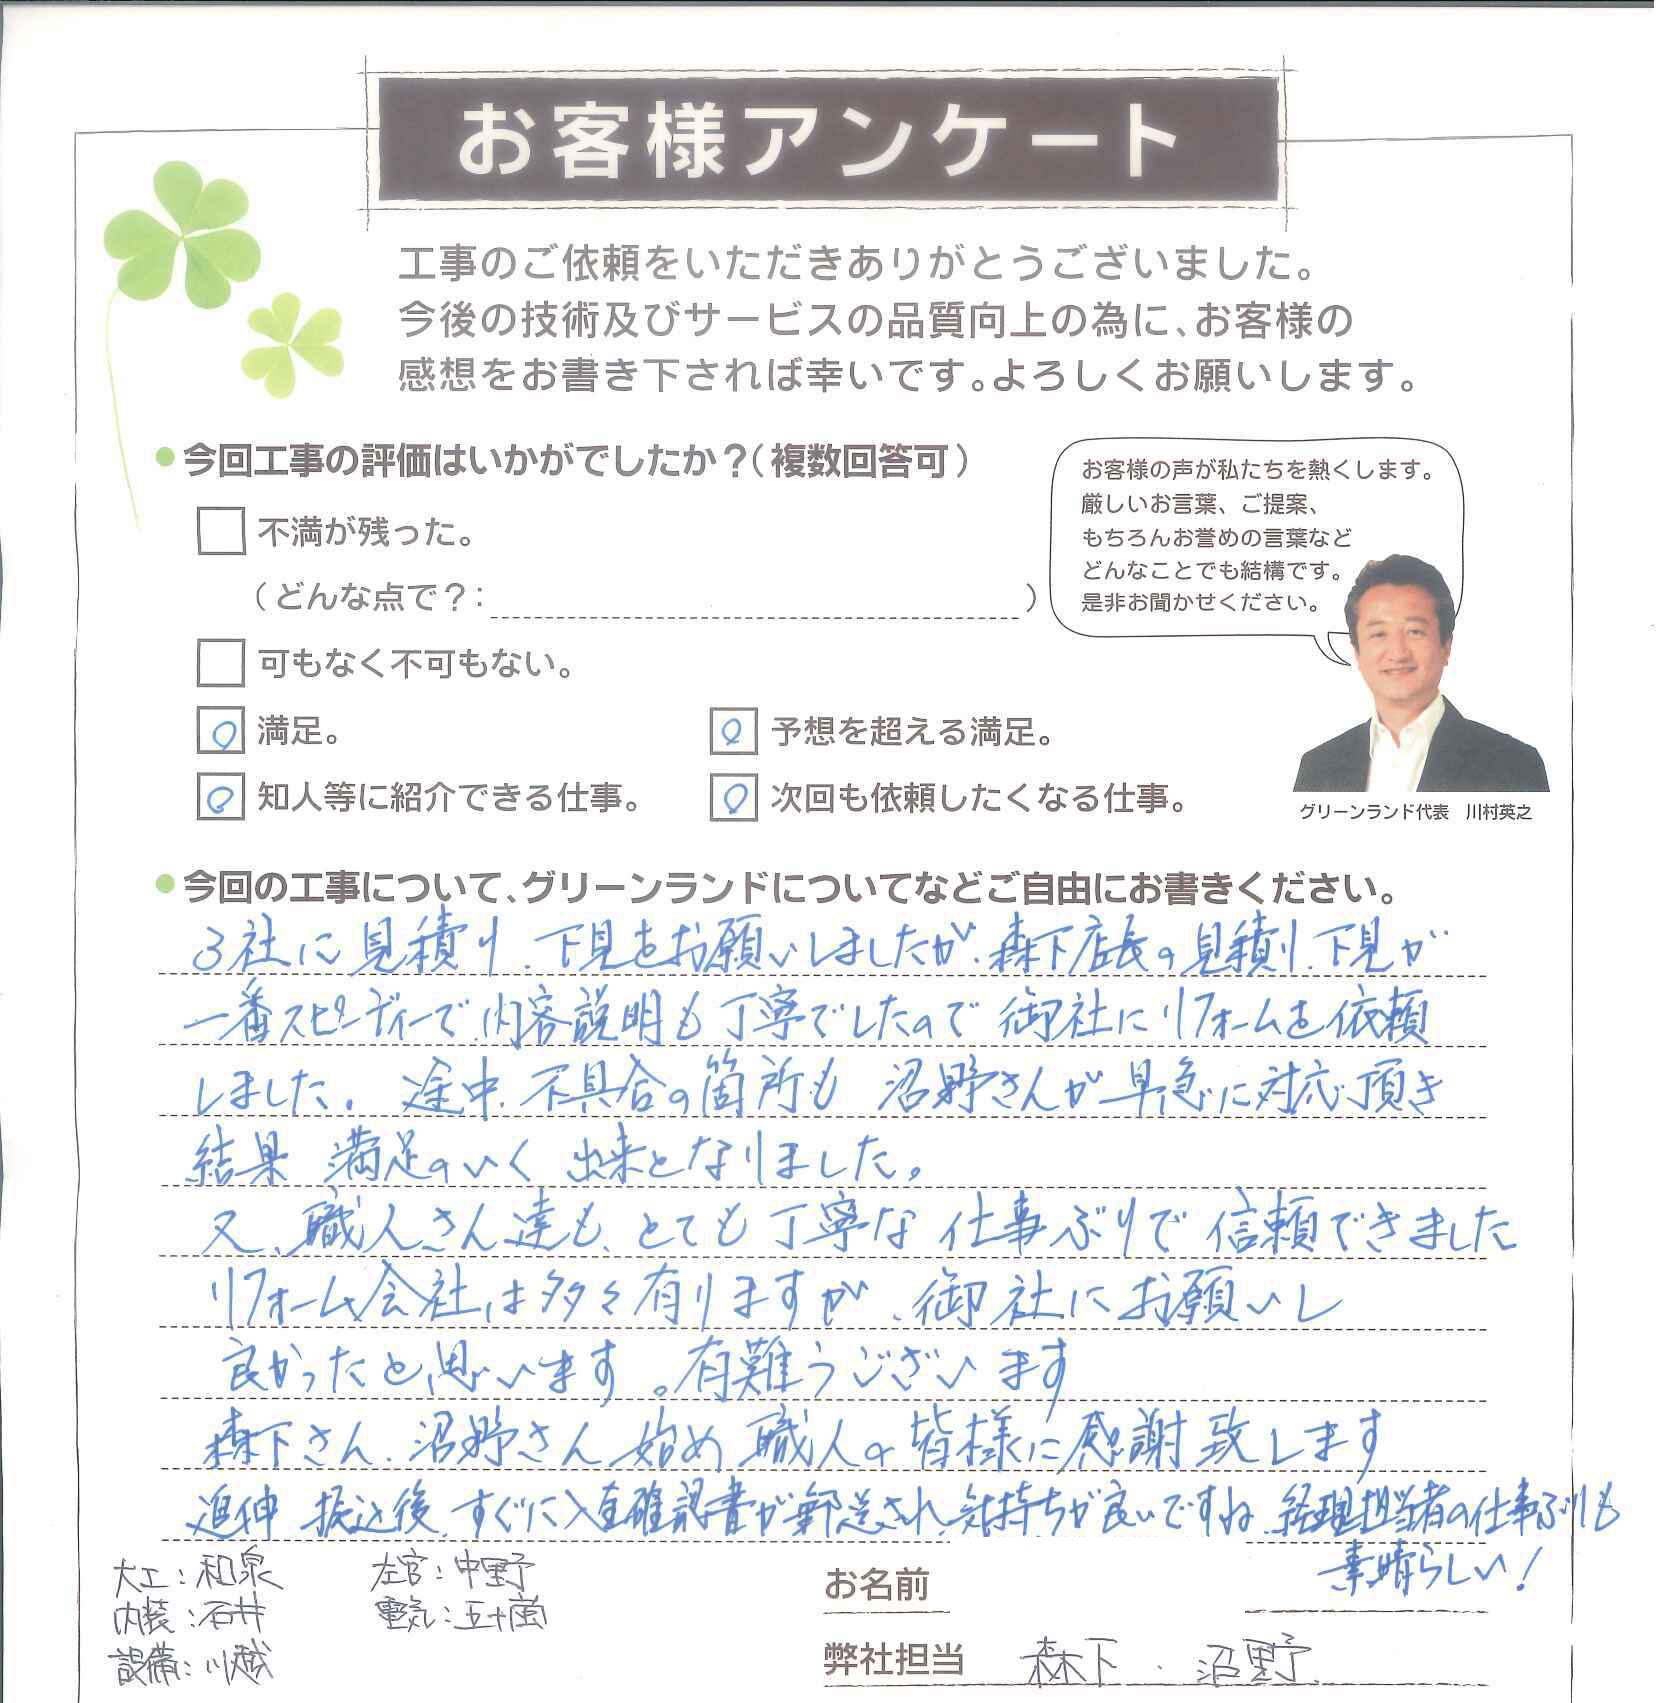 お客様アンケート
工事のご依頼をいただきありがとうございました。
今後の技術及びサービスの品質向上の為に、お客様の
感想をお書き下されば幸いです。よろしくお願いします。
●今回工事の評価はいかがでしたか？（複数回答可）
不満が残った。
（どんな点で？：　　　）
可もなく不可もない。
満足。
予想を超える満足。
知人等に紹介できる仕事。
次回も依頼したくなる仕事。
お客様の声が私たちを熱くします。
厳しいお言葉、ご提案、
もちろんお誉めの言葉など
どんなことでも結構です。
是非お聞かせください。
グリーンランド代表　川村英之
●今回の工事について、グリーンランドについてなどご自由にお書きください。
3社に見積り、下見をお願いしましたが、森下店長の見積り、下見が
一番スピーディーで、内容説明も丁寧でしたので御社にリフォームを依頼
しました。途中、不具合の箇所も沼野さんが早急に対応頂き
結果 満足のいく 出来となりました。
又、職人さん達も、とても丁寧な仕事ぶりで信頼できました
リフォーム会社は多々有りますが、御社にお願いし
良かったと思います。有難うございます
森下さん、沼野さん始め職人の皆様に感謝致します
追伸 振込後、すぐに入金確認書が郵送され、気持ちが良いですね、経理担当者の仕事ぶりも
素晴らしい！
大工：和泉
左官：中野
内装：石井
電気：五十嵐
設備：川越
お名前
弊社担当　森下．沼野